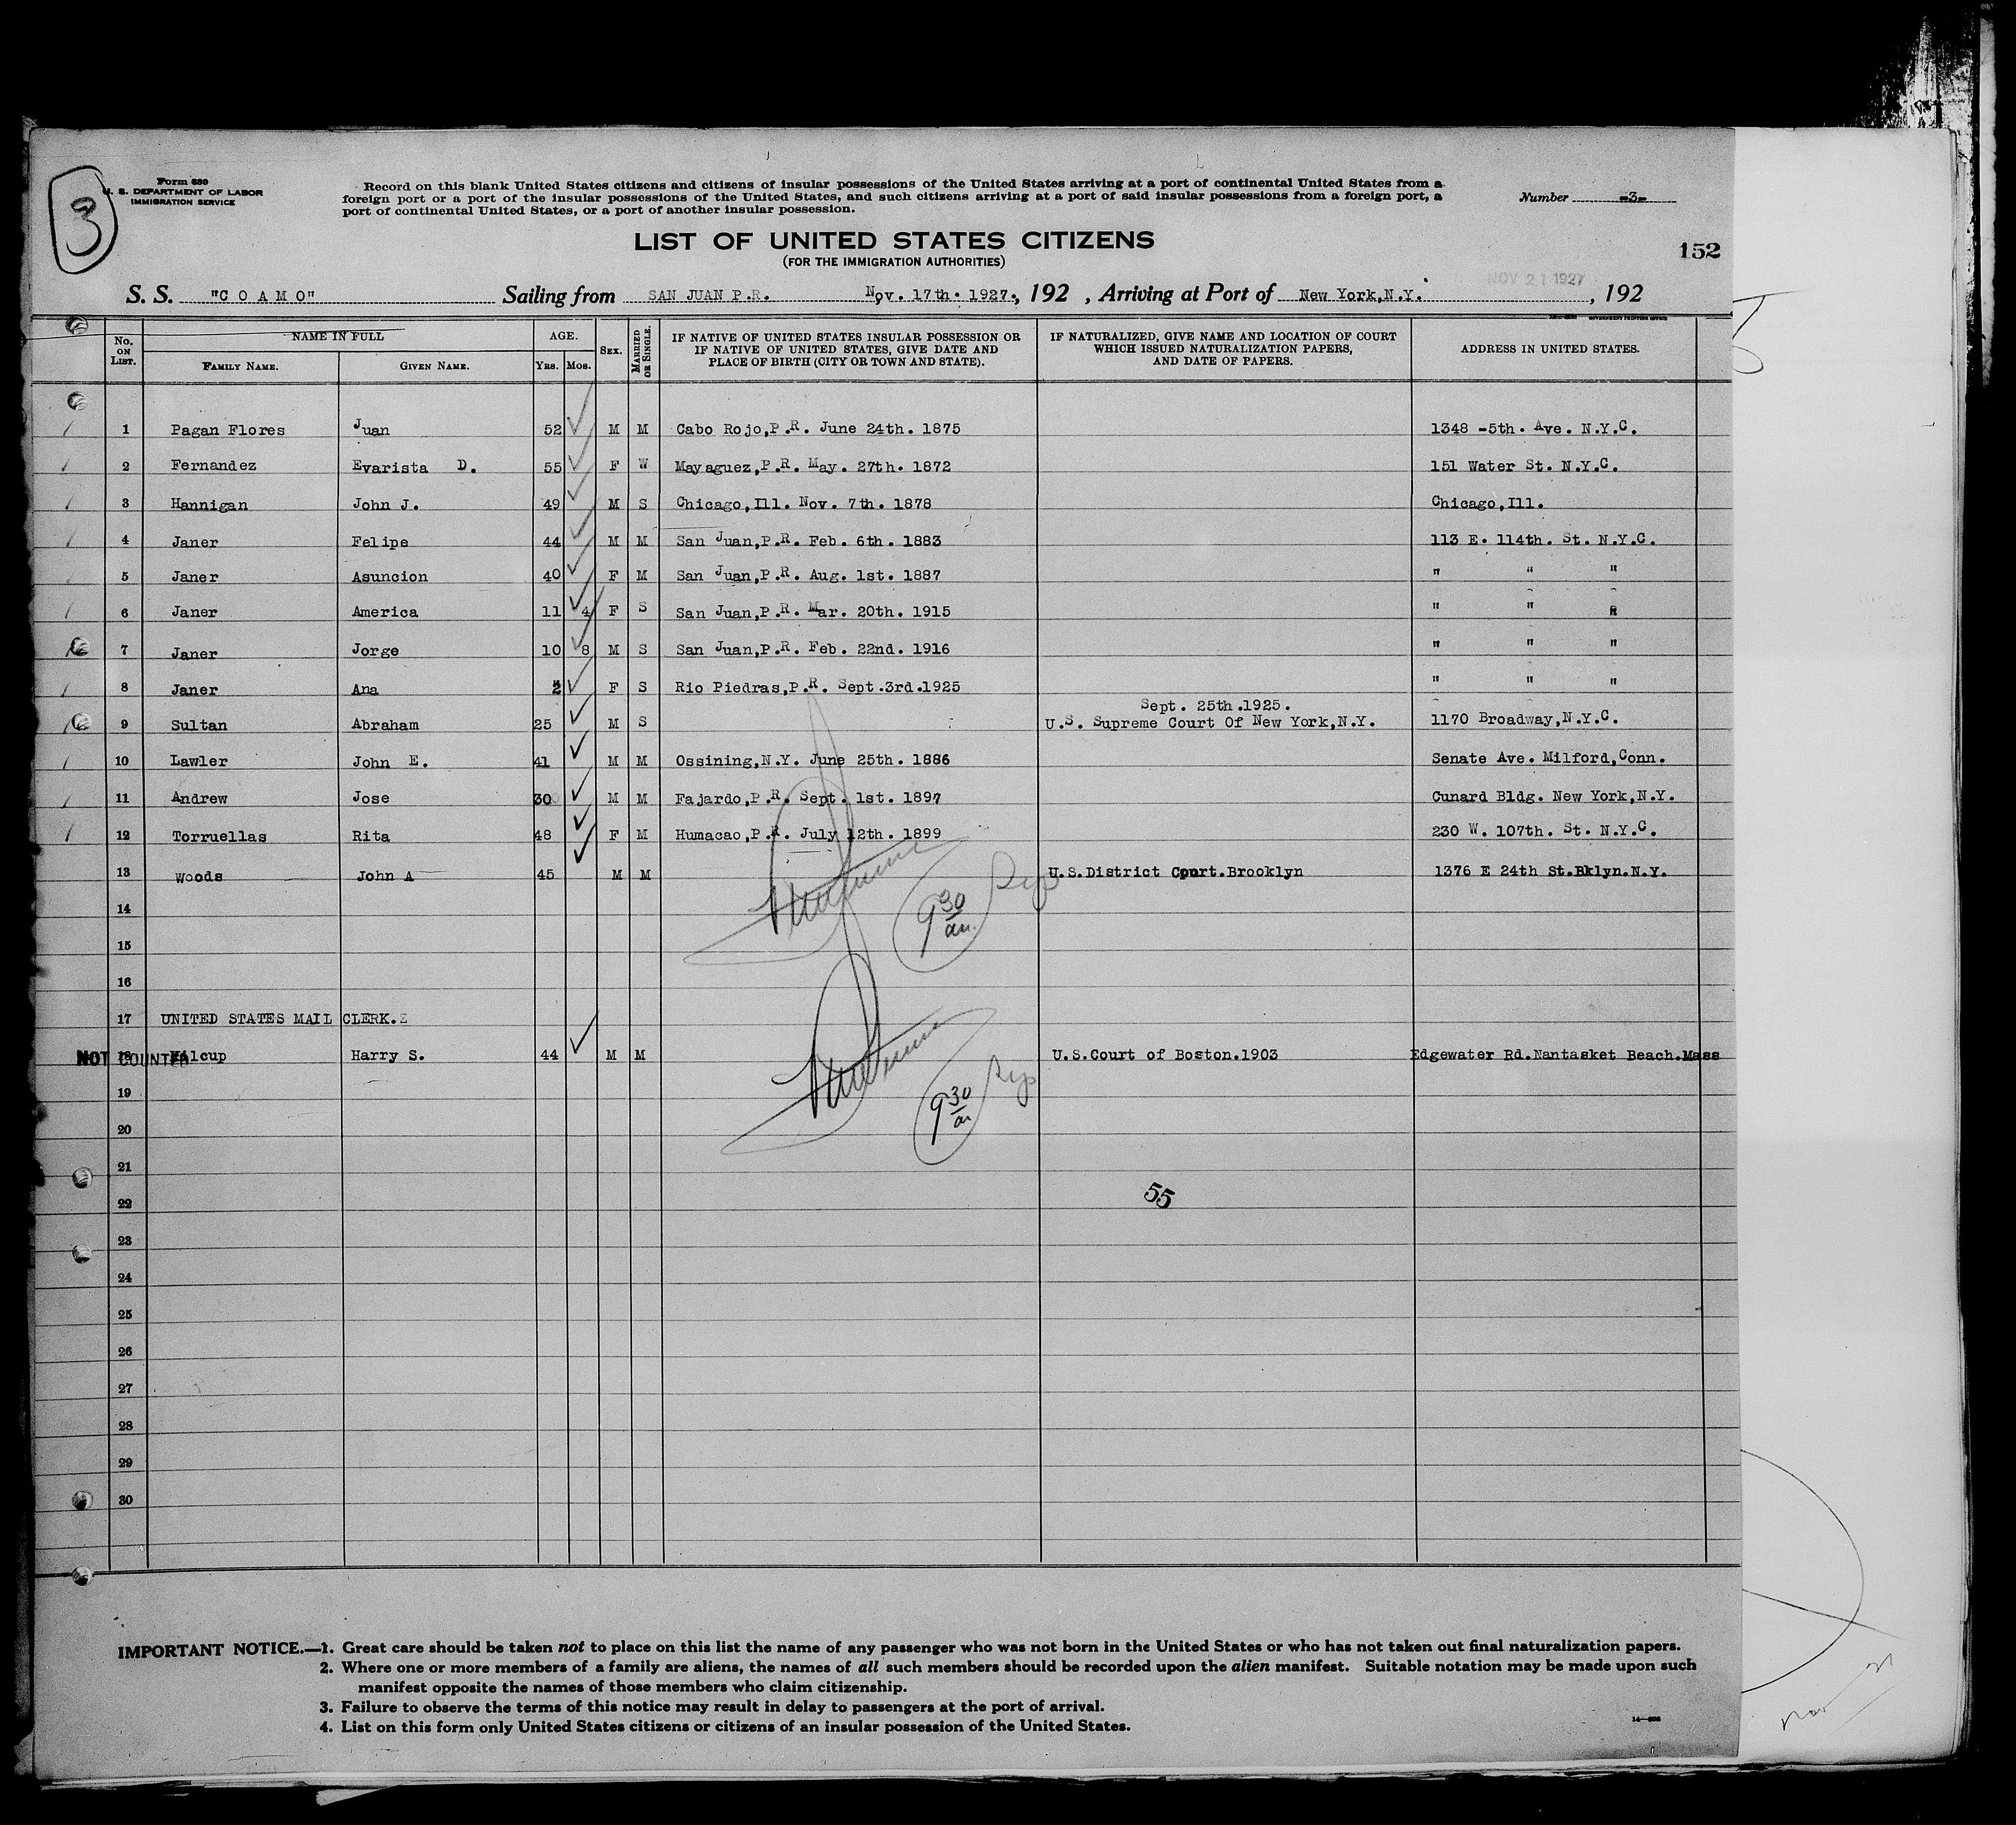 3
Form 630
U. S. DEPARTMENT OF LABOR
IMMIGRATION SERVICE
Record on this blank United States citizens and citizens of insular possessions of the United States arriving at a port of continental United States from a
foreign port or a port of the insular possessions of the United States, and such citizens arriving at a port of said insular possessions from a foreign port, a
port of continental United States, or a port of another insular possession.
Number -3-
LIST OF UNITED STATES CITIZENS
(FOR THE IMMIGRATION AUTHORITIES)
152
S. S. "C O A M O" Sailing from SAN JUAN P.R. Nov. 17th. 1927., 192 , Arriving at Port of New York,N.Y. NOV 21 1927 , 192
No. ON LIST. NAME IN FULL FAMILY NAME. GIVEN NAME. AGE. YRS. MOS. SEX. MARRIED OR SINGLE. IF NATIVE OF UNITED STATES INSULAR POSSESSION OR IF NATIVE OF UNITED STATES, GIVE DATE AND PLACE OF BIRTH (CITY OR TOWN AND STATE). IF NATURALIZED, GIVE NAME AND LOCATION OF COURT WHICH ISSUED NATURALIZATION PAPERS, AND DATE OF PAPERS. ADDRESS IN UNITED STATES.
1 Pagan Flores Juan 52 M M Cabo Rojo,P.R. June 24th. 1875 1348 -5th. Ave. N.Y.C.
2 Fernandez Evarista D. 55 F W Mayaguez,P.R. May. 27th. 1872 151 Water St. N.Y.C.
3 Hannigan John J. 49 M S Chicago,Ill. Nov. 7th. 1878 Chicago,Ill.
4 Janer Felipe 44 M M San Juan,P.R. Feb. 6th. 1883 113 E. 114th. St. N.Y.C.
5 Janer Asuncion 40 F M San Juan,P.R. Aug. 1st. 1887 " " "
6 Janer America 11 4 F S San Juan,P.R. Mar. 20th. 1915 " " "
7 Janer Jorge 10 8 M S San Juan,P.R. Feb. 22nd. 1916 " " "
8 Janer Ana 2 F S Rio Piedras,P.R. Sept.3rd.1925 " " "
Sept. 25th.1925.
9 Sultan Abraham 25 M S U.S. Supreme Court Of New York,N.Y. 1170 Broadway,N.Y.C.
10 Lawler John E. 41 M M Ossining,N.Y. June 25th. 1886 Senate Ave. Milford,Conn.
11 Andrew Jose 30 M M Fajardo,P.R. Sept. 1st. 1897 Cunard Bldg. New York,N.Y.
12 Torruellas Rita 48 F M Humacao,P.R. July 12th. 1899 230 W. 107th. St. N.Y.C.
13 Woods John A 45 M M U.S.District Court.Brooklyn 1376 E 24th St.Bklyn.N.Y.
14
9 30 am.
15
16
17 UNITED STATES MAIL CLERK.
NOT COUNTED 18 Harry S. 44 M M U.S.Court of Boston.1903 Edgewater Rd.Nantasket Beach.Mass
19
9 30
20
21
22 55
23
24
25
26
27
28
29
30
IMPORTANT NOTICE.—1. Great care should be taken not to place on this list the name of any passenger who was not born in the United States or who has not taken out final naturalization papers.
2. Where one or more members of a family are aliens, the names of all such members should be recorded upon the alien manifest. Suitable notation may be made upon such
manifest opposite the names of those members who claim citizenship.
3. Failure to observe the terms of this notice may result in delay to passengers at the port of arrival.
4. List on this form only United States citizens or citizens of an insular possession of the United States.
Nov 21